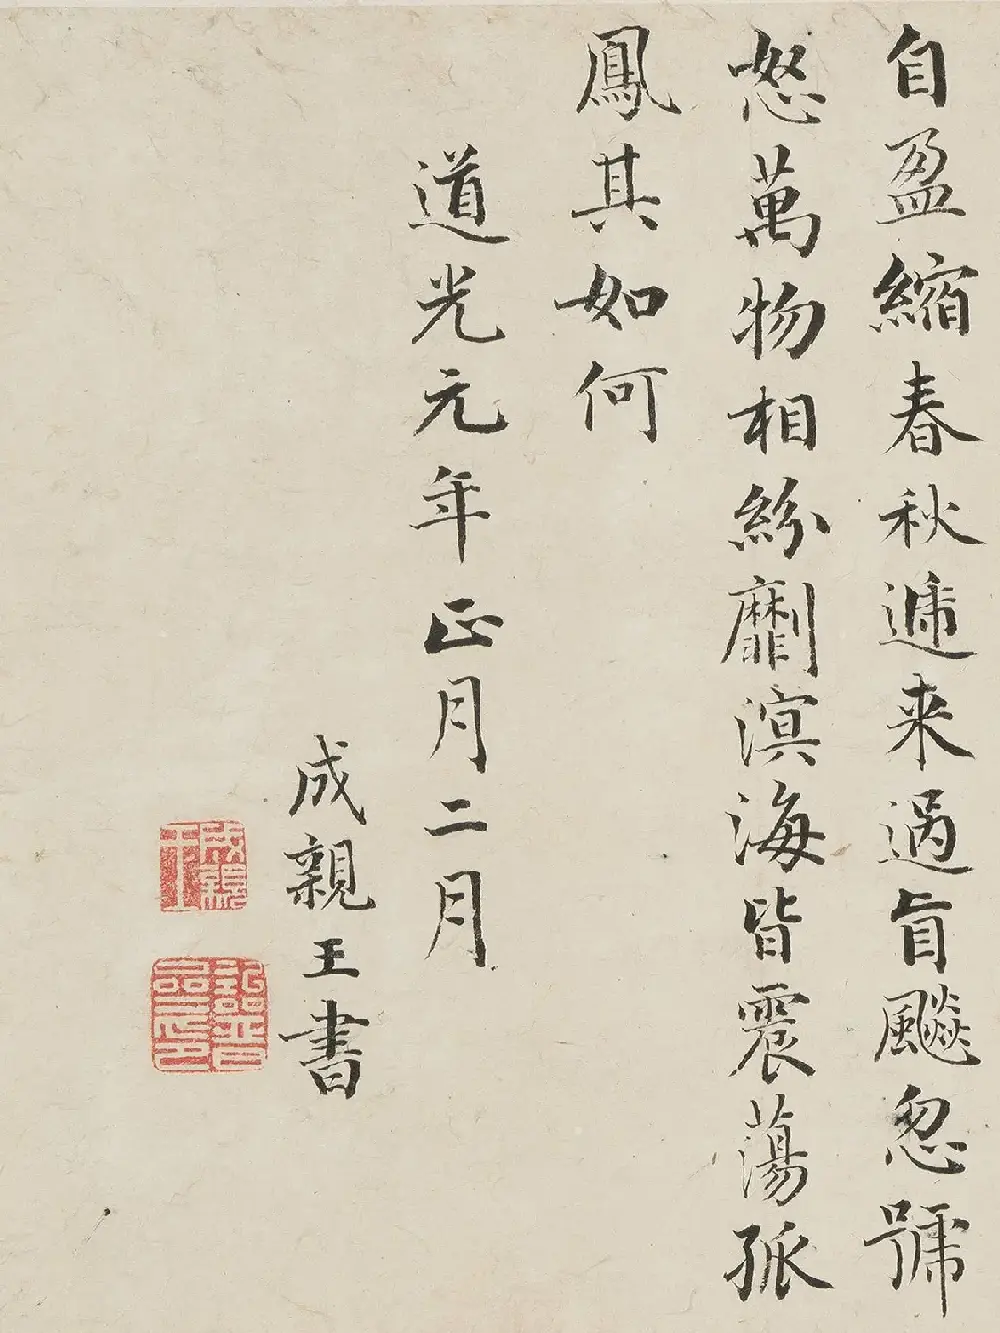 自盈縮春秋遞来過盲飈忽號
怒萬物相紛劘溟海皆震蕩孤
鳳其如何
道光元年正月二月
成親王書
成親王
詒晉齋印